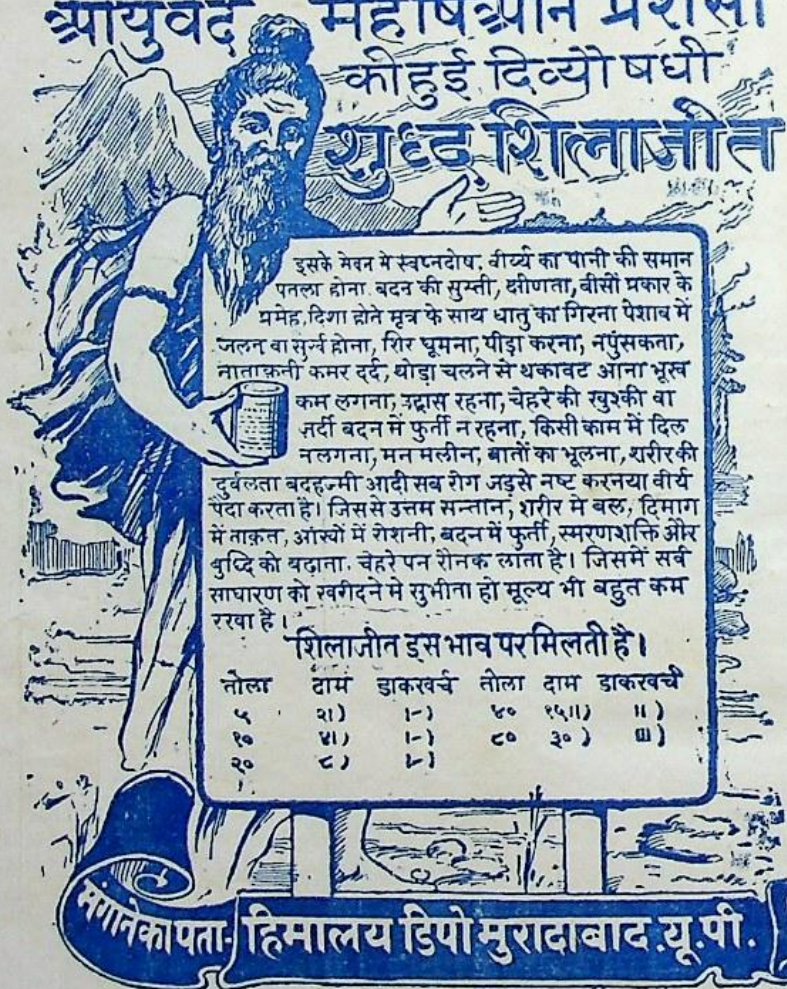 आयुर्वेद महर्षिओंने प्रशंसा
की हुई दिव्यौषधी
शुध्द शिलाजीत
इसके सेवन मे स्वप्नदोष, वीर्य्य का पानी की समान
पतला होना, बदन की सुस्ती, क्षीणता, बीसों प्रकार के
प्रमेह, दिशा होते मूत्र के साथ धातु का गिरना पेशाब में
जलन वा सुर्ख होना, शिर घूमना, पीड़ा करना, नपुंसकता,
नाताक़ती कमर दर्द, थोड़ा चलने से थकावट आना भूख
कम लगना, उदास रहना, चेहरे की खुश्की वा
ज़र्दी बदन में फुर्ती न रहना, किसी काम में दिल
नलगना, मन मलीन, बातों का भूलना, शरीर की
दुर्बलता बदहज़्मी आदी सब रोग जड़से नष्ट कर नया वीर्य
पैदा करता है। जिससे उत्तम सन्तान, शरीर मे बल, दिमाग
में ताक़त, आंखों में रोशनी, बदन में फुर्ती, स्मरणशक्ति और
बुध्दि को बढ़ाना, चेहरे पन रौनक लाता है। जिसमें सर्व
साधारण को खरीदने मे सुभीता हो मूल्य भी बहुत कम
रखा है।
शिलाजीत इस भाव पर मिलती है।
तोला दाम डाकखर्च तोला दाम डाकखर्च
५ २।) ।-) ४० १५॥) ॥)
१० ४।) ।-) ८० ३०) ॥।)
२० ८) ।-)
मंगाने का पता- हिमालय डिपो मुरादाबाद.यू.पी.